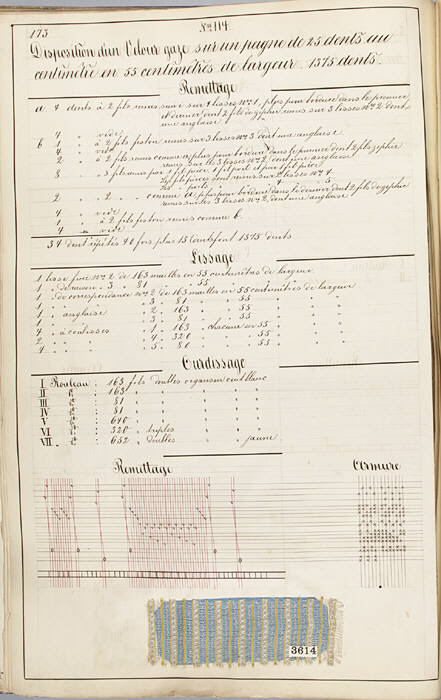 173
No. 114
Disposition d'un Velours gaze sur un peigne de 25 dents au
centimètre en 55 centimètres de largeur. 1375 dents
Remettage
a 4 dents à 2 fils remis sur 4 lisses No. 1, plus pour bordure dans la première
et dernier dont 2 fils de zéphir remis sur 3 lisses No. 2 dont
une anglaise
4 " vide
b 1 " à 2 fils feston remis sur 3 lisses No. 3 dont une anglaise
4 " vide
2 " à 2 fils remis comme a plus pour bordure dans le premier dont 2 fils zéphir
remis sur les 3 lisses No. 2 dont une anglaise
8 " à 3 fils
lisses No. 4
2 " 2 " comme a plus pour bordure dans le dernier dont 2 fils de zéphir
remis sur les 3 lisses No. 2 dont une anglaise
4 " vide
1 " à 2 fils feston remis comme b
4 " vide
34 dents répétés 40 fois plus 15 dents font 1375 dents
Lissage
1 lisse fine No. 2 de 163 mailles en 55 centimètres de largeur
1 " 3 " 81 " 55
1 " de correspondance No. 2 de 163 mailles en 55 centimètres de largeur
1 " " 3 " 81 " 55
1 " anglaise " 2 " 163 " 55
1 " " 3 " 81 " 55
4 " à coulisses " 1 " 163 " chacune en 55
2 " " 4 " 320 " 55
4 " " 5 " 80 " 55
Ourdissage
I Rouleau : 163 fils doubles organsin cuit blanc
II " : 163
III " : 81
IV " : 81
V " : 640
VI " : 320 " triples
VII " : 652 " doubles " jaune
Remettage
Armure
3614